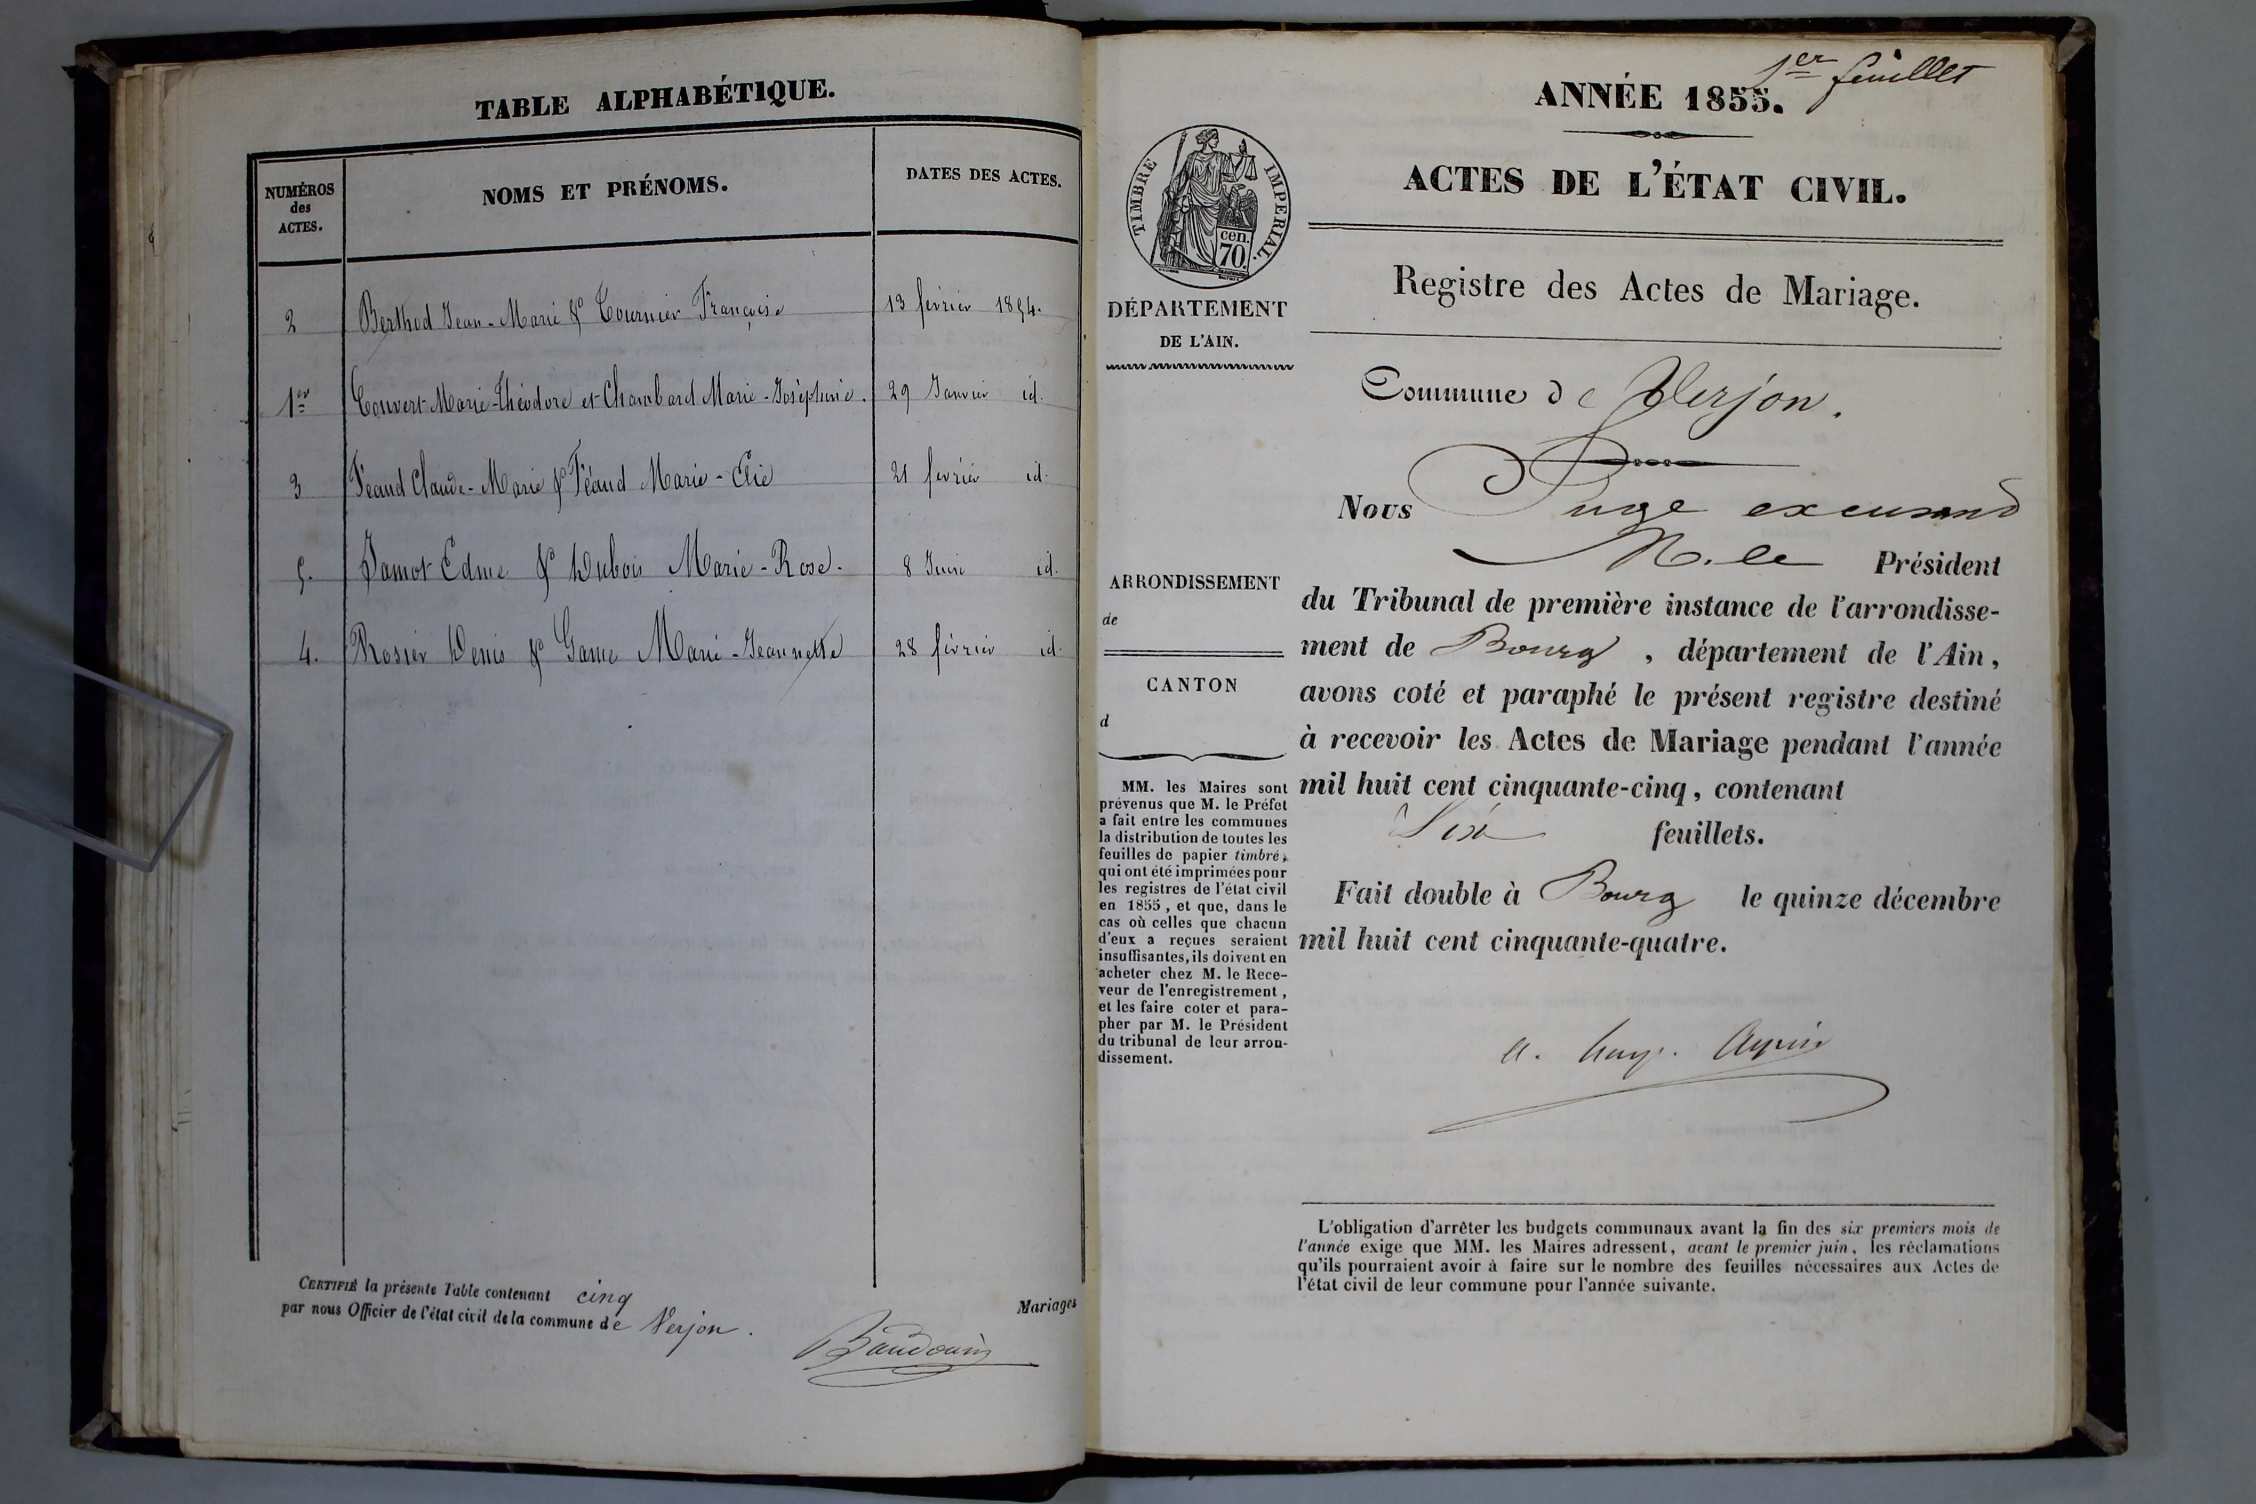 TABLE ALPHABÉTIQUE.
NUMÉROS
des
ACTES.
NOMS ET PRÉNOMS.
DATES DES ACTES.
2 Berthod Jean-Marie & Tournier Françoise 13 février 1854.
1er Convert Marie-Théodore et Chambard Marie-Joséphine. 29 Janvier id.
3 Féaud Claude-Marie & Féaud Marie-Elie 21 février id.
5. Jamot Edme & Dubois Marie-Rose. 8 Juin id.
4. Rosier Denis & Game Marie-Jeannette 28 février id.
CERTIFIÉ la présente Table contenant cinq Mariages
par nous Officier de l'état civil de la commune de Verjon.
Baudouin
1er feuillet
ANNÉE 1855.
ACTES DE L'ÉTAT CIVIL.
TIMBRE IMPERIAL.
cen.
70.
Registre des Actes de Mariage.
DÉPARTEMENT
DE L'AIN.
Commune de Verjon.
Nous Juge excusant
M. le Président
ARRONDISSEMENT
de
CANTON
d
du Tribunal de première instance de l'arrondisse-
ment de Bourg, département de l'Ain,
avons coté et paraphé le présent registre destiné
à recevoir les Actes de Mariage pendant l'année
mil huit cent cinquante-cinq, contenant
Six feuillets.
Fait double à Bourg le quinze décembre
mil huit cent cinquante-quatre.
MM. les Maires sont
prévenus que M. le Préfet
a fait entre les communes
la distribution de toutes les
feuilles de papier timbré,
qui ont été imprimées pour
les registres de l'état civil
en 1855, et que, dans le
cas où celles que chacun
d'eux a reçues seraient
insuffisantes, ils doivent en
acheter chez M. le Rece-
veur de l'enregistrement,
et les faire coter et para-
pher par M. le Président
du tribunal de leur arron-
dissement.
L'obligation d'arrêter les budgets communaux avant la fin des six premiers mois de
l'année exige que MM. les Maires adressent, avant le premier juin, les réclamations
qu'ils pourraient avoir à faire sur le nombre des feuilles nécessaires aux Actes de
l'état civil de leur commune pour l'année suivante.